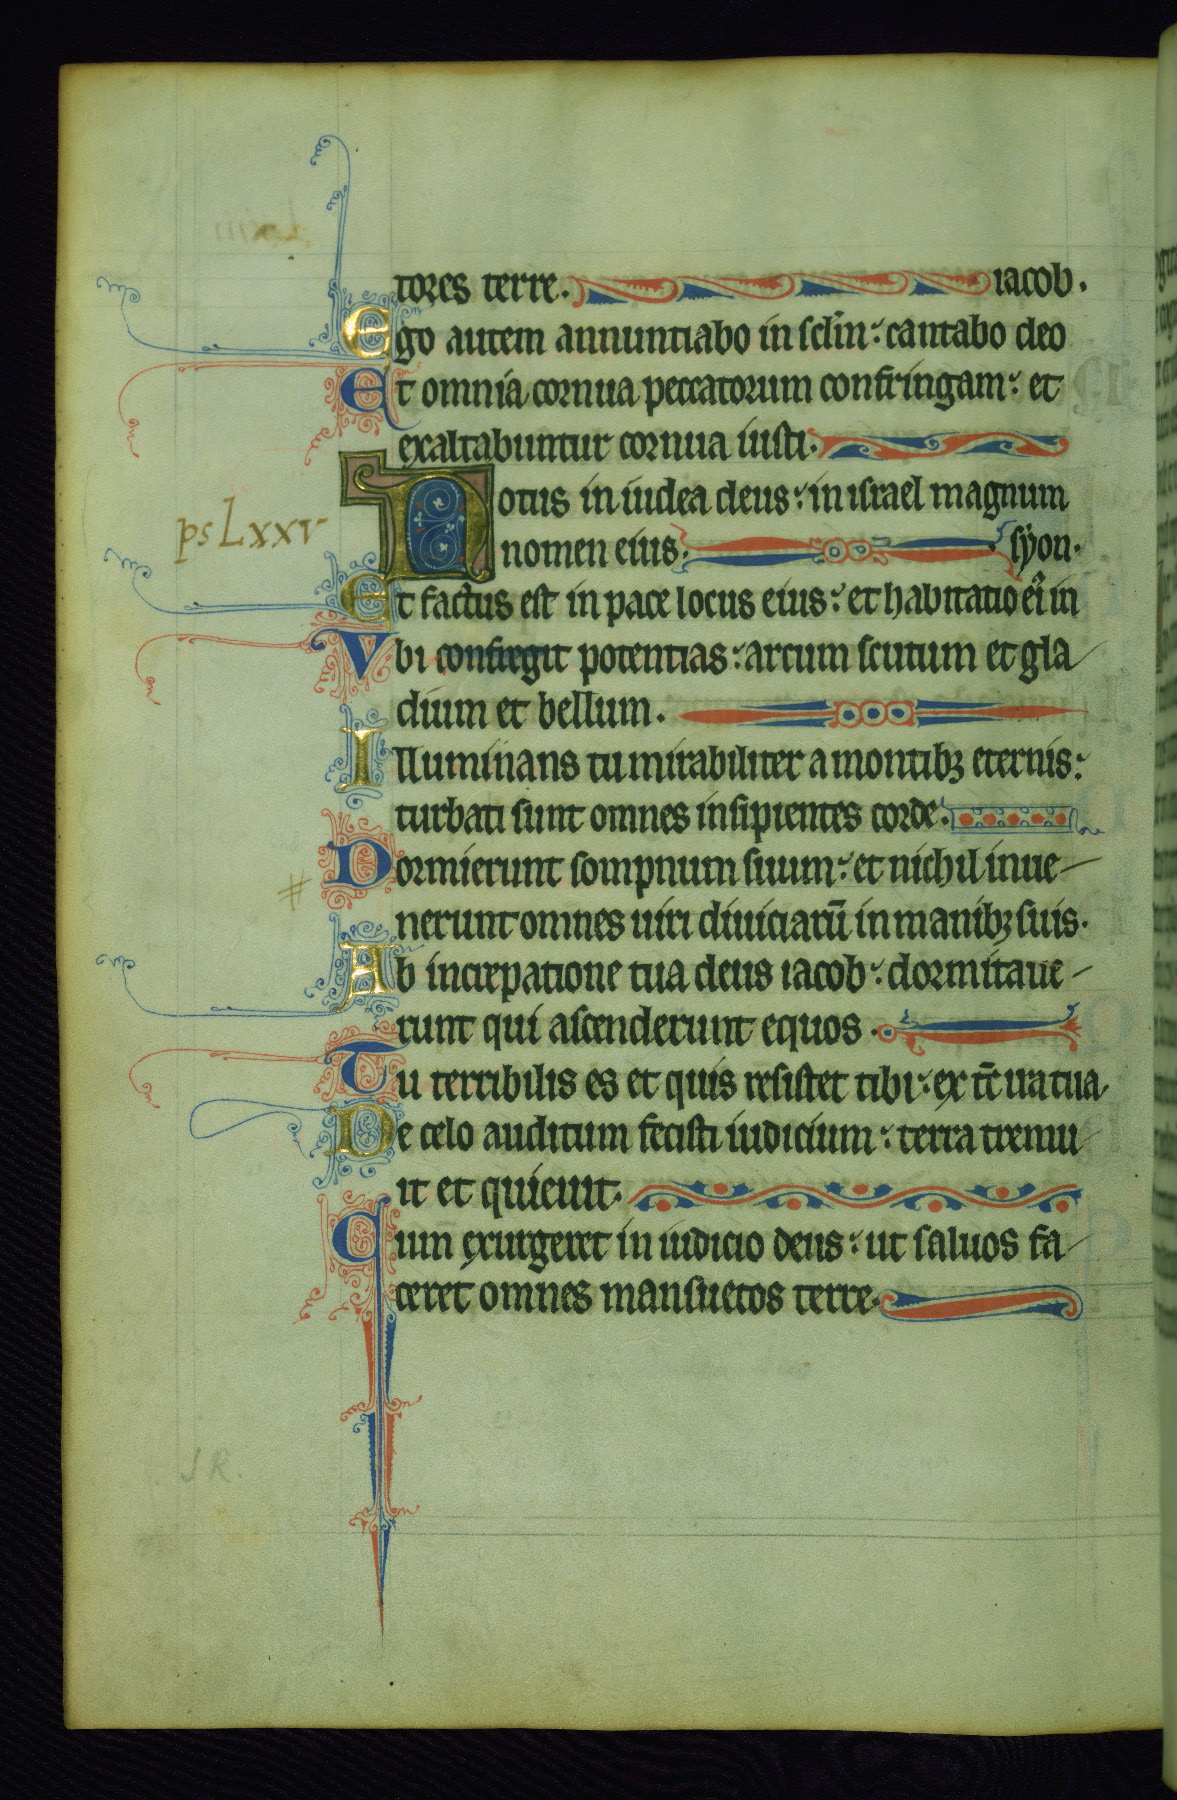 tores terre. iacob.
Ego autem annuntiabo in sclm: cantabo deo
Et omnia cornua peccatorum confringam: et
exaltabuntur cornua iusti.
ps Lxxv
Notus in iudea deus: in israel magnum
nomen eius. syon.
Et factus est in pace locus eius: et habitatio ei in
Vbi confregit potentias: arcum scutum et gla
dium et bellum.
Illuminans tu mirabiliter a montibꝫ eternis:
turbati sunt omnes insipientes corde.
Dormierunt sompnum suum: et nichil inue
#
nerunt omnes uiri diuiciarū in manibꝫ suis.
Ab increpatione tua deus iacob: dormitaue
runt qui ascenderunt equos.
Tu terribilis es et quis resistet tibi: ex tc̄ ira tua.
De celo auditum fecisti iudicium: terra tremu
it et quieuit.
Cum exurgeret in iudicio deus: ut saluos fa
ceret omnes mansuetos terre.
J R.